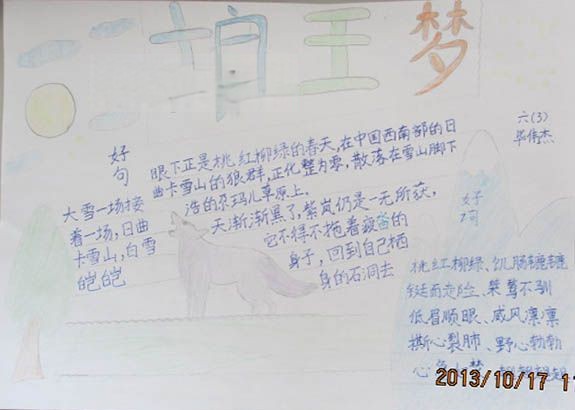 狼王梦
六(3)
毕伟杰
好句
大雪一场接
着一场,日曲
卡雪山,白雪
皑皑
眼下正是桃红柳绿的春天,在中国西南部的日
曲卡雪山的狼群,正化整为零,散落在雪山脚下
浩的尕玛儿草原上。
天渐渐黑了,紫岚仍是一无所获,
它不得不拖着疲惫的
身子,回到自己栖
身的石洞去
好词
桃红柳绿、饥肠辘辘
铤而走险、桀骜不驯
低眉顺眼、威风凛凛
撕心裂肺、野心勃勃
心
2013/10/17 1